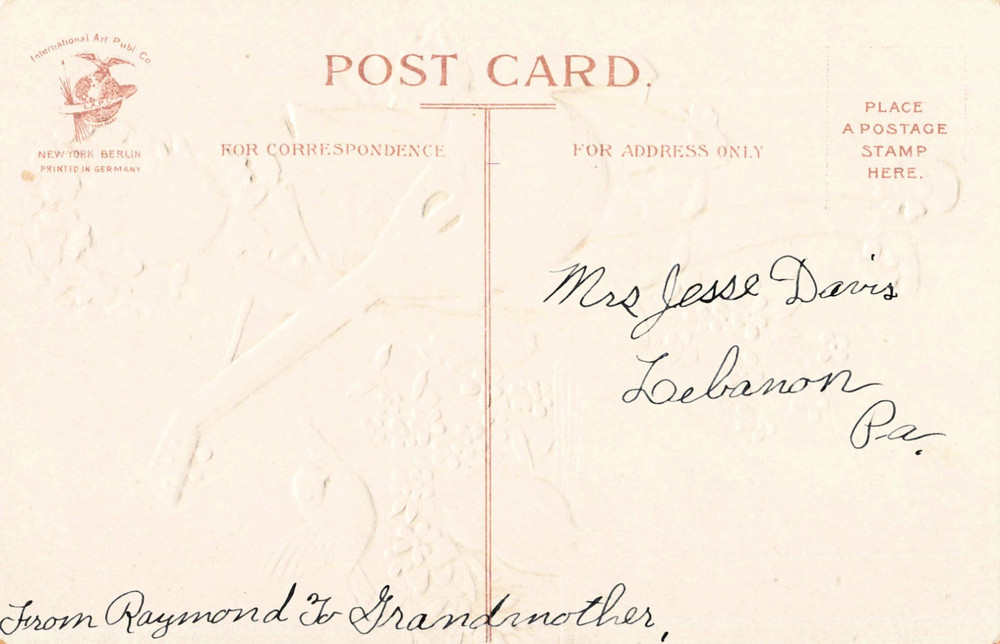 International Art Publ. Co.
NEW-YORK BERLIN
PRINTED IN GERMANY
POST CARD.
FOR CORRESPONDENCE
FOR ADDRESS ONLY
PLACE
A POSTAGE
STAMP
HERE.
Mrs Jesse Davis
Lebanon
Pa.
From Raymond To Grandmother,